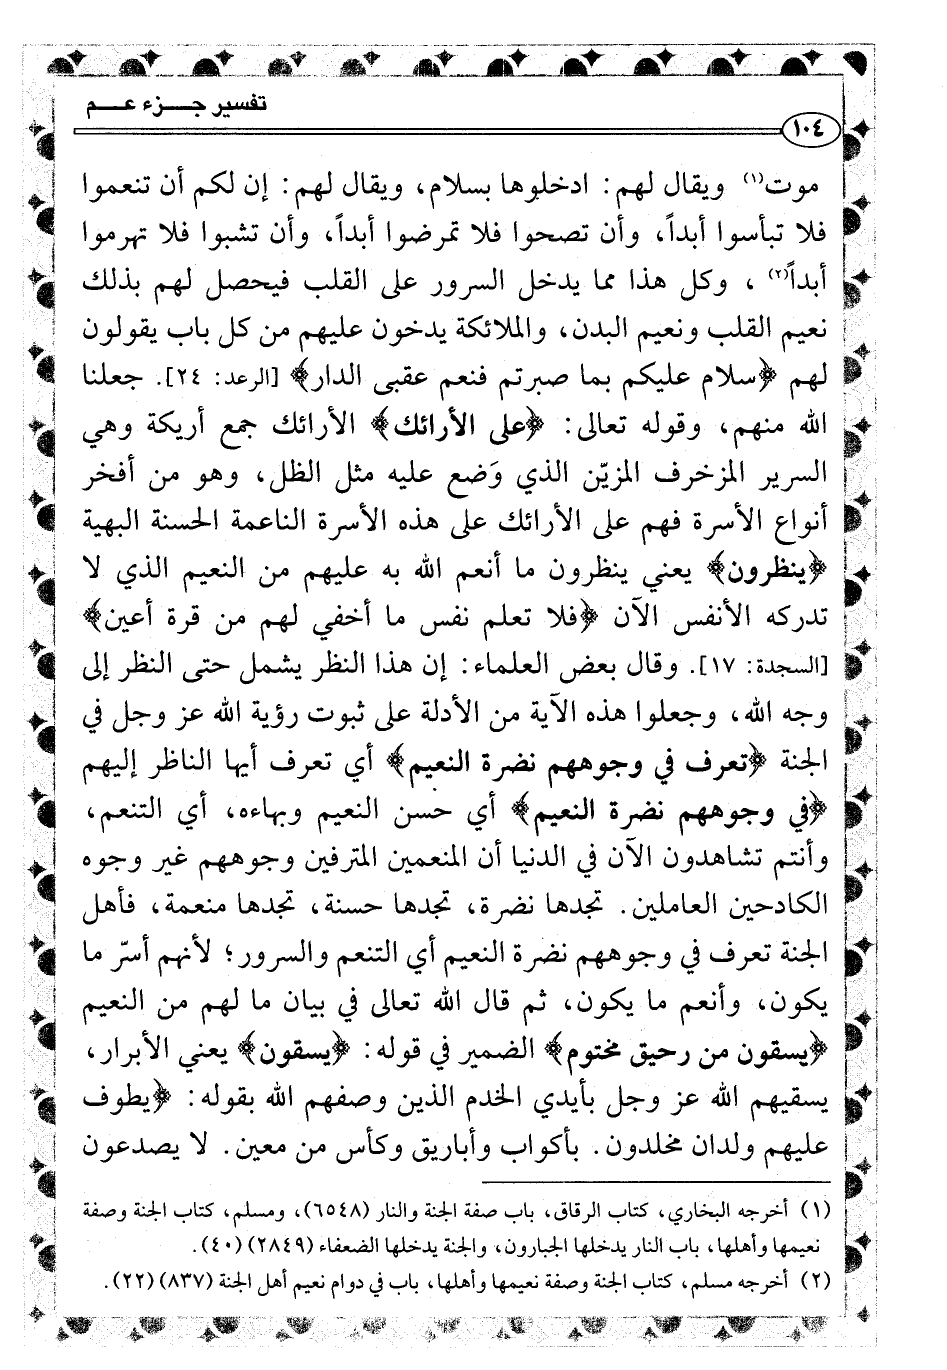 تفسير جـــزء عـــم
١٠٤
موت(١) ويقال لهم: ادخلوها بسلام، ويقال لهم: إن لكم أن تنعموا
فلا تبأسوا أبداً، وأن تصحوا فلا تمرضوا أبداً، وأن تشبوا فلا تهرموا
أبداً(٢) ، وكل هذا مما يدخل السرور على القلب فيحصل لهم بذلك
نعيم القلب ونعيم البدن، والملائكة يدخون عليهم من كل باب يقولون
لهم ﴿سلام عليكم بما صبرتم فنعم عقبى الدار﴾ [الرعد: ٢٤]. جعلنا
الله منهم، وقوله تعالى: ﴿على الأرائك﴾ الأرائك جمع أريكة وهي
السرير المزخرف المزيّن الذي وَضع عليه مثل الظل، وهو من أفخر
أنواع الأسرة فهم على الأرائك على هذه الأسرة الناعمة الحسنة البهية
﴿ينظرون﴾ يعني ينظرون ما أنعم الله به عليهم من النعيم الذي لا
تدركه الأنفس الآن ﴿فلا تعلم نفس ما أخفي لهم من قرة أعين﴾
[السجدة: ١٧]. وقال بعض العلماء: إن هذا النظر يشمل حتى النظر إلى
وجه الله، وجعلوا هذه الآية من الأدلة على ثبوت رؤية الله عز وجل في
الجنة ﴿تعرف في وجوههم نضرة النعيم﴾ أي تعرف أيها الناظر إليهم
﴿في وجوههم نضرة النعيم﴾ أي حسن النعيم وبهاءه، أي التنعم،
وأنتم تشاهدون الآن في الدنيا أن المنعمين المترفين وجوههم غير وجوه
الكادحين العاملين. تجدها نضرة، تجدها حسنة، تجدها منعمة، فأهل
الجنة تعرف في وجوههم نضرة النعيم أي التنعم والسرور؛ لأنهم أسرّ ما
يكون، وأنعم ما يكون، ثم قال الله تعالى في بيان ما لهم من النعيم
﴿يسقون من رحيق مختوم﴾ الضمير في قوله: ﴿يسقون﴾ يعني الأبرار،
يسقيهم الله عز وجل بأيدي الخدم الذين وصفهم الله بقوله: ﴿يطوف
عليهم ولدان مخلدون. بأكواب وأباريق وكأس من معين. لا يصدعون
(١) أخرجه البخاري، كتاب الرقاق، باب صفة الجنة والنار (٦٥٤٨)، ومسلم، كتاب الجنة وصفة
نعيمها وأهلها، باب النار يدخلها الجبارون، والجنة يدخلها الضعفاء (٢٨٤٩) (٤٠).
(٢) أخرجه مسلم، كتاب الجنة وصفة نعيمها وأهلها، باب في دوام نعيم أهل الجنة (٨٣٧) (٢٢).